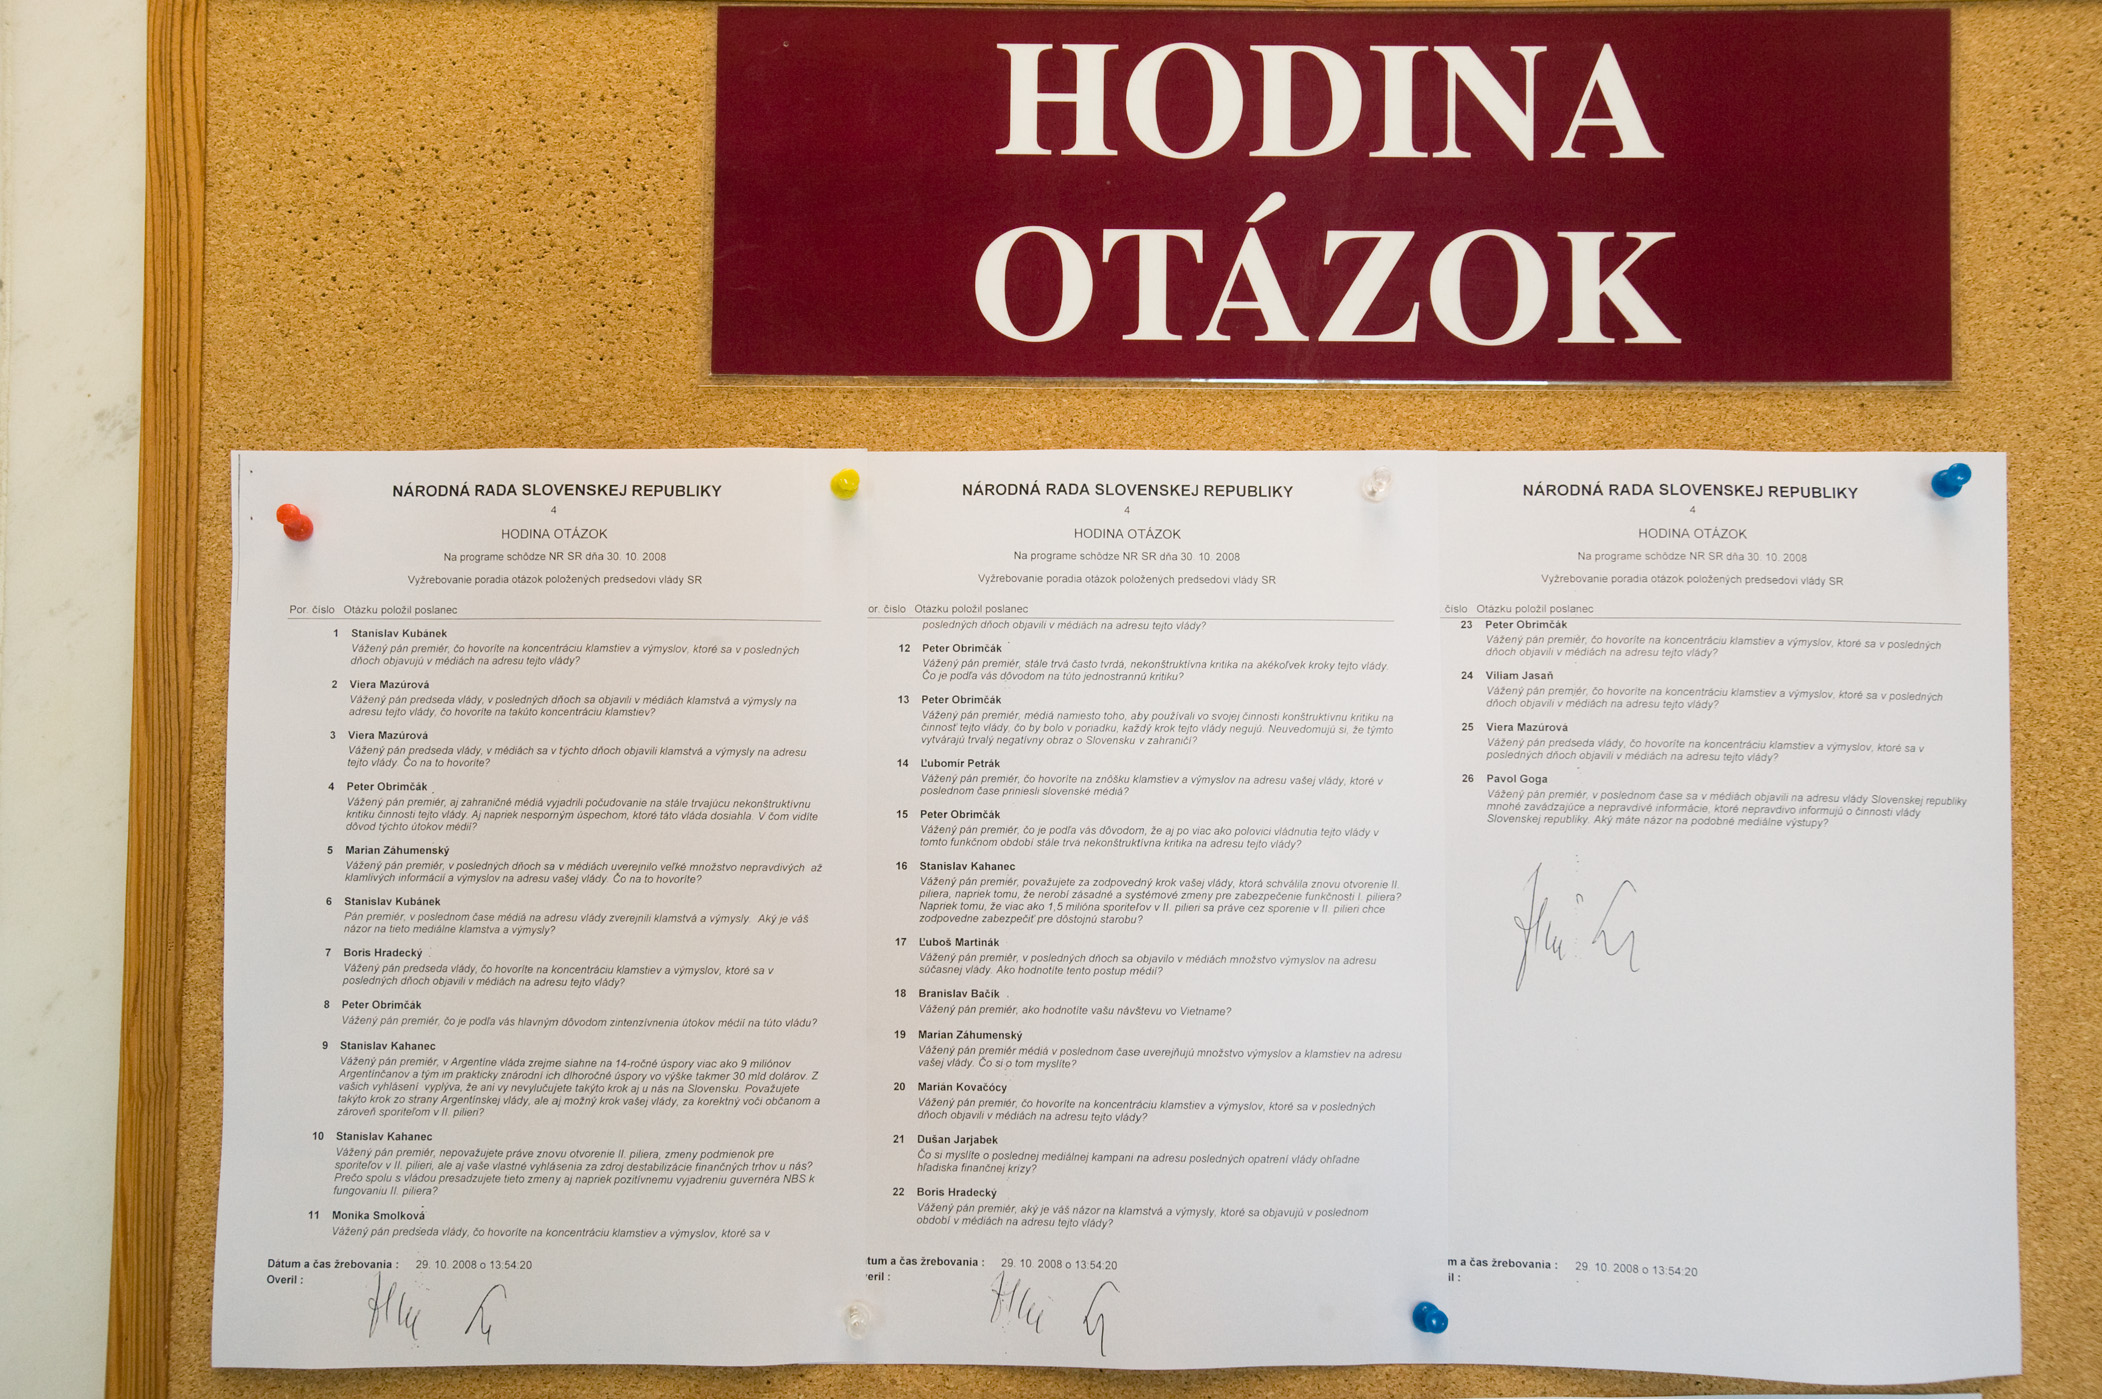 HODINA
OTÁZOK
NÁRODNÁ RADA SLOVENSKEJ REPUBLIKY
4
HODINA OTÁZOK
Na programe schôdze NR SR dňa 30. 10. 2008
Vyžrebovanie poradia otázok položených predsedovi vlády SR
Por. číslo Otázku položil poslanec
1 Stanislav Kubánek
Vážený pán premiér, čo hovoríte na koncentráciu klamstiev a výmyslov, ktoré sa v posledných
dňoch objavujú v médiách na adresu tejto vlády?
2 Viera Mazúrová
Vážený pán predseda vlády, v posledných dňoch sa objavili v médiách klamstvá a výmysly na
adresu tejto vlády, čo hovoríte na takúto koncentráciu klamstiev?
3 Viera Mazúrová
Vážený pán predseda vlády, v médiách sa v týchto dňoch objavili klamstvá a výmysly na adresu
tejto vlády. Čo na to hovoríte?
4 Peter Obrimčák
Vážený pán premiér, aj zahraničné médiá vyjadrili počudovanie na stále trvajúcu nekonštruktívnu
kritiku činnosti tejto vlády. Aj napriek nesporným úspechom, ktoré táto vláda dosiahla. V čom vidíte
dôvod týchto útokov médií?
5 Marian Záhumenský
Vážený pán premiér, v posledných dňoch sa v médiách uverejnilo veľké množstvo nepravdivých až
klamlivých informácií a výmyslov na adresu vašej vlády. Čo na to hovoríte?
6 Stanislav Kubánek
Pán premiér, v poslednom čase médiá na adresu vlády zverejnili klamstvá a výmysly. Aký je váš
názor na tieto mediálne klamstva a výmysly?
7 Boris Hradecký
Vážený pán predseda vlády, čo hovoríte na koncentráciu klamstiev a výmyslov, ktoré sa v
posledných dňoch objavili v médiách na adresu tejto vlády?
8 Peter Obrimčák
Vážený pán premiér, čo je podľa vás hlavným dôvodom zintenzívnenia útokov médií na túto vládu?
9 Stanislav Kahanec
Vážený pán premiér, v Argentíne vláda zrejme siahne na 14-ročné úspory viac ako 9 miliónov
Argentínčanov a tým im prakticky znárodní ich dlhoročné úspory vo výške takmer 30 mld dolárov. Z
vašich vyhlásení vyplýva, že ani vy nevylučujete takýto krok aj u nás na Slovensku. Považujete
takýto krok zo strany Argentínskej vlády, ale aj možný krok vašej vlády, za korektný voči občanom a
zároveň sporiteľom v II. pilieri?
10 Stanislav Kahanec
Vážený pán premiér, nepovažujete práve znovu otvorenie II. piliera, zmeny podmienok pre
sporiteľov v II. pilieri, ale aj vaše vlastné vyhlásenia za zdroj destabilizácie finančných trhov u nás?
Prečo spolu s vládou presadzujete tieto zmeny aj napriek pozitívnemu vyjadreniu guvernéra NBS k
fungovaniu II. piliera?
11 Monika Smolková
Vážený pán predseda vlády, čo hovoríte na koncentráciu klamstiev a výmyslov, ktoré sa v
Dátum a čas žrebovania : 29. 10. 2008 o 13:54:20
Overil :
NÁRODNÁ RADA SLOVENSKEJ REPUBLIKY
4
HODINA OTÁZOK
Na programe schôdze NR SR dňa 30. 10. 2008
Vyžrebovanie poradia otázok položených predsedovi vlády SR
or. číslo Otázku položil poslanec
posledných dňoch objavili v médiách na adresu tejto vlády?
12 Peter Obrimčák
Vážený pán premiér, stále trvá často tvrdá, nekonštruktívna kritika na akékoľvek kroky tejto vlády.
Čo je podľa vás dôvodom na túto jednostrannú kritiku?
13 Peter Obrimčák
Vážený pán premiér, médiá namiesto toho, aby používali vo svojej činnosti konštruktívnu kritiku na
činnosť tejto vlády, čo by bolo v poriadku, každý krok tejto vlády negujú. Neuvedomujú si, že týmto
vytvárajú trvalý negatívny obraz o Slovensku v zahraničí?
14 Ľubomír Petrák
Vážený pán premiér, čo hovoríte na znôšku klamstiev a výmyslov na adresu vašej vlády, ktoré v
poslednom čase priniesli slovenské médiá?
15 Peter Obrimčák
Vážený pán premiér, čo je podľa vás dôvodom, že aj po viac ako polovici vládnutia tejto vlády v
tomto funkčnom období stále trvá nekonštruktívna kritika na adresu tejto vlády?
16 Stanislav Kahanec
Vážený pán premiér, považujete za zodpovedný krok vašej vlády, ktorá schválila znovu otvorenie II.
piliera, napriek tomu, že nerobí zásadné a systémové zmeny pre zabezpečenie funkčnosti I. piliera?
Napriek tomu, že viac ako 1,5 milióna sporiteľov v II. pilieri sa práve cez sporenie v II. pilieri chce
zodpovedne zabezpečiť pre dôstojnú starobu?
17 Ľuboš Martinák
Vážený pán premiér, v posledných dňoch sa objavilo v médiách množstvo výmyslov na adresu
súčasnej vlády. Ako hodnotíte tento postup médií?
18 Branislav Bačík
Vážený pán premiér, ako hodnotíte vašu návštevu vo Vietname?
19 Marian Záhumenský
Vážený pán premiér médiá v poslednom čase uverejňujú množstvo výmyslov a klamstiev na adresu
vašej vlády. Čo si o tom myslíte?
20 Marián Kovačócy
Vážený pán premiér, čo hovoríte na koncentráciu klamstiev a výmyslov, ktoré sa v posledných
dňoch objavili v médiách na adresu tejto vlády?
21 Dušan Jarjabek
Čo si myslíte o poslednej mediálnej kampani na adresu posledných opatrení vlády ohľadne
hľadiska finančnej krízy?
22 Boris Hradecký
Vážený pán premiér, aký je váš názor na klamstvá a výmysly, ktoré sa objavujú v poslednom
období v médiách na adresu tejto vlády?
tum a čas žrebovania : 29. 10. 2008 o 13:54:20
eril :
NÁRODNÁ RADA SLOVENSKEJ REPUBLIKY
4
HODINA OTÁZOK
Na programe schôdze NR SR dňa 30. 10. 2008
Vyžrebovanie poradia otázok položených predsedovi vlády SR
číslo Otázku položil poslanec
23 Peter Obrimčák
Vážený pán premiér, čo hovoríte na koncentráciu klamstiev a výmyslov, ktoré sa v posledných
dňoch objavili v médiách na adresu tejto vlády?
24 Viliam Jasaň
Vážený pán premiér, čo hovoríte na koncentráciu klamstiev a výmyslov, ktoré sa v posledných
dňoch objavili v médiách na adresu tejto vlády?
25 Viera Mazúrová
Vážený pán predseda vlády, čo hovoríte na koncentráciu klamstiev a výmyslov, ktoré sa v
posledných dňoch objavili v médiách na adresu tejto vlády?
26 Pavol Goga
Vážený pán premiér, v poslednom čase sa v médiách objavili na adresu vlády Slovenskej republiky
mnohé zavádzajúce a nepravdivé informácie, ktoré nepravdivo informujú o činnosti vlády
Slovenskej republiky. Aký máte názor na podobné mediálne výstupy?
m a čas žrebovania : 29. 10. 2008 o 13:54:20
il :